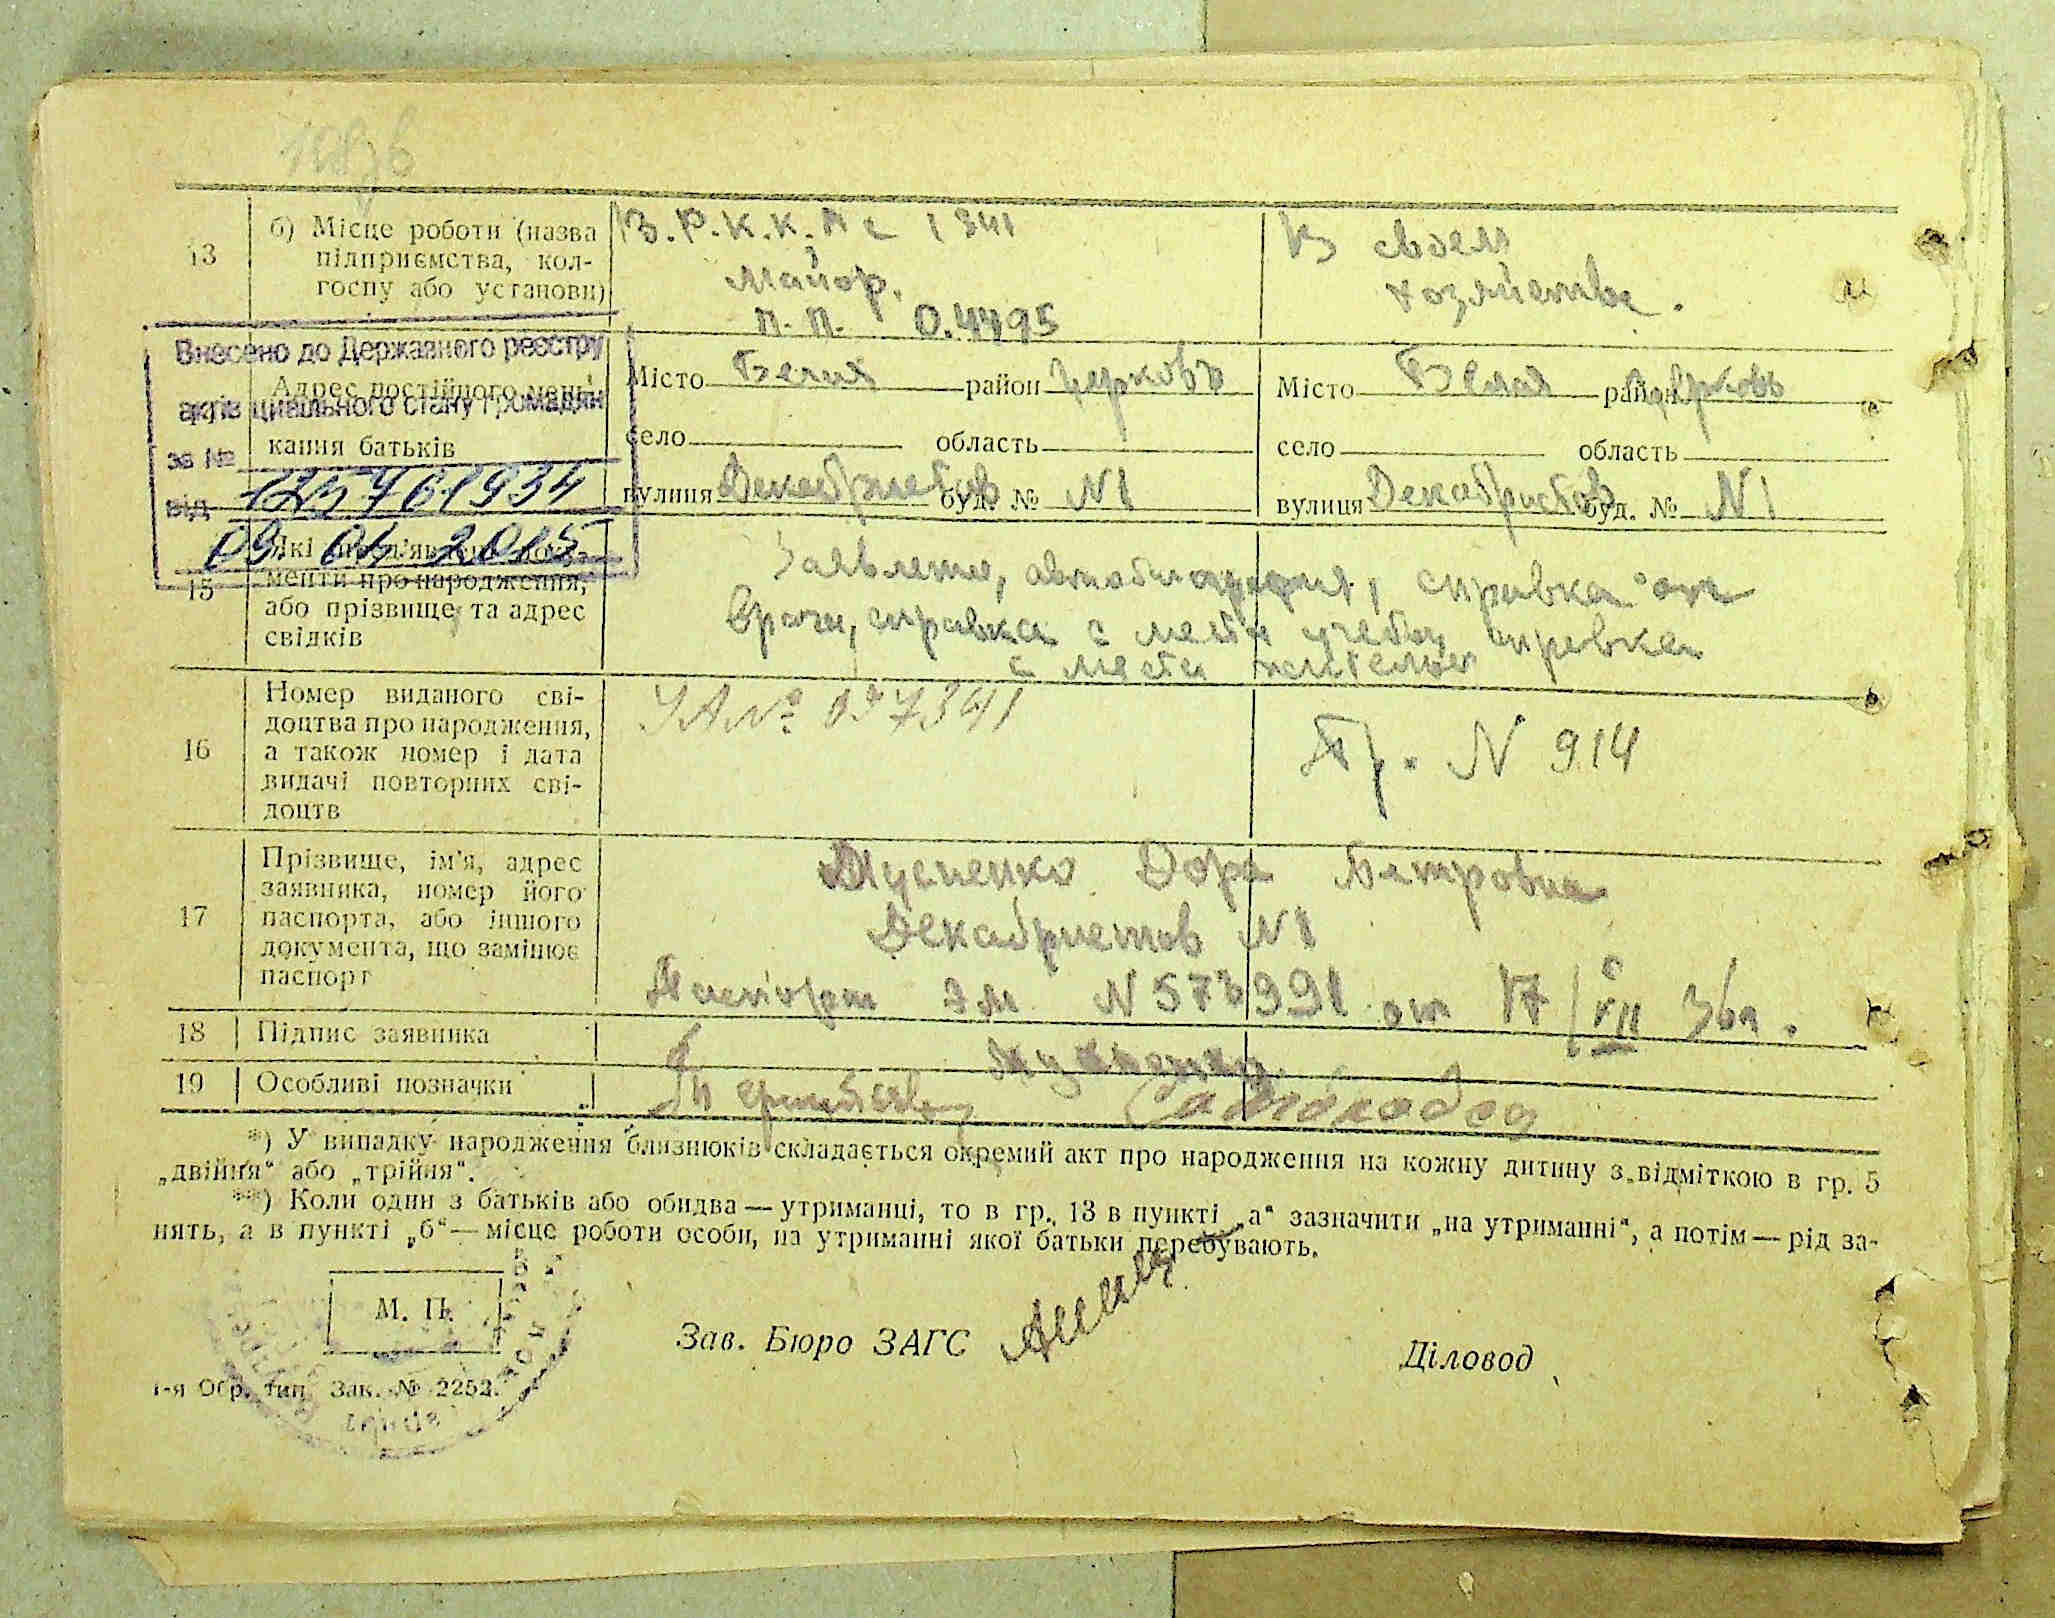 13
б) Місце роботи (назва підприємства, колгоспу або установи)
В.Р.К.К.А с 1941
Майор.
п.п. 04495
В своем
хозяйстве.
Внесено до Державного реєстру
актів цивільного стану громадян
за № 125761934
від 09.04.2015
Адрес постійного мешкання батьків
Місто Белая район Церковь
село область
вулиця Декабристов буд. № N1
Місто Белая район Церковь
село область
вулиця Декабристов буд. № N1
15
Які документи про народження,
або прізвище та адрес
свідків
Заявление, автобиография, справка от
врача, справка с места учебы справка
с места жительст
16
Номер виданого свідоцтва про народження,
а також номер і дата
видачі повторних свідоцтв
УА № 097341
Пр. N 914
17
Прізвище, ім'я, адрес
заявника, номер його
паспорта, або іншого
документа, що замінює
паспорт
Дора Петровна
Декабристов N1
Паспорт ЭМ от 17/VII 36г.
18 Підпис заявника
19 Особливі позначки
*) У випадку народження близнюків складається окремий акт про народження на кожну дитину з відміткою в гр. 5
„двійня“ або „трійня“.
**) Коли один з батьків або обидва — утриманці, то в гр. 13 в пункті „а“ зазначити „на утриманні“, а потім — рід за-
нять, а в пункті „б“ — місце роботи особи, на утриманні якої батьки перебувають.
М. П.
Зав. Бюро ЗАГС
Діловод
1-я Обр. тип. Зак. № 2252.